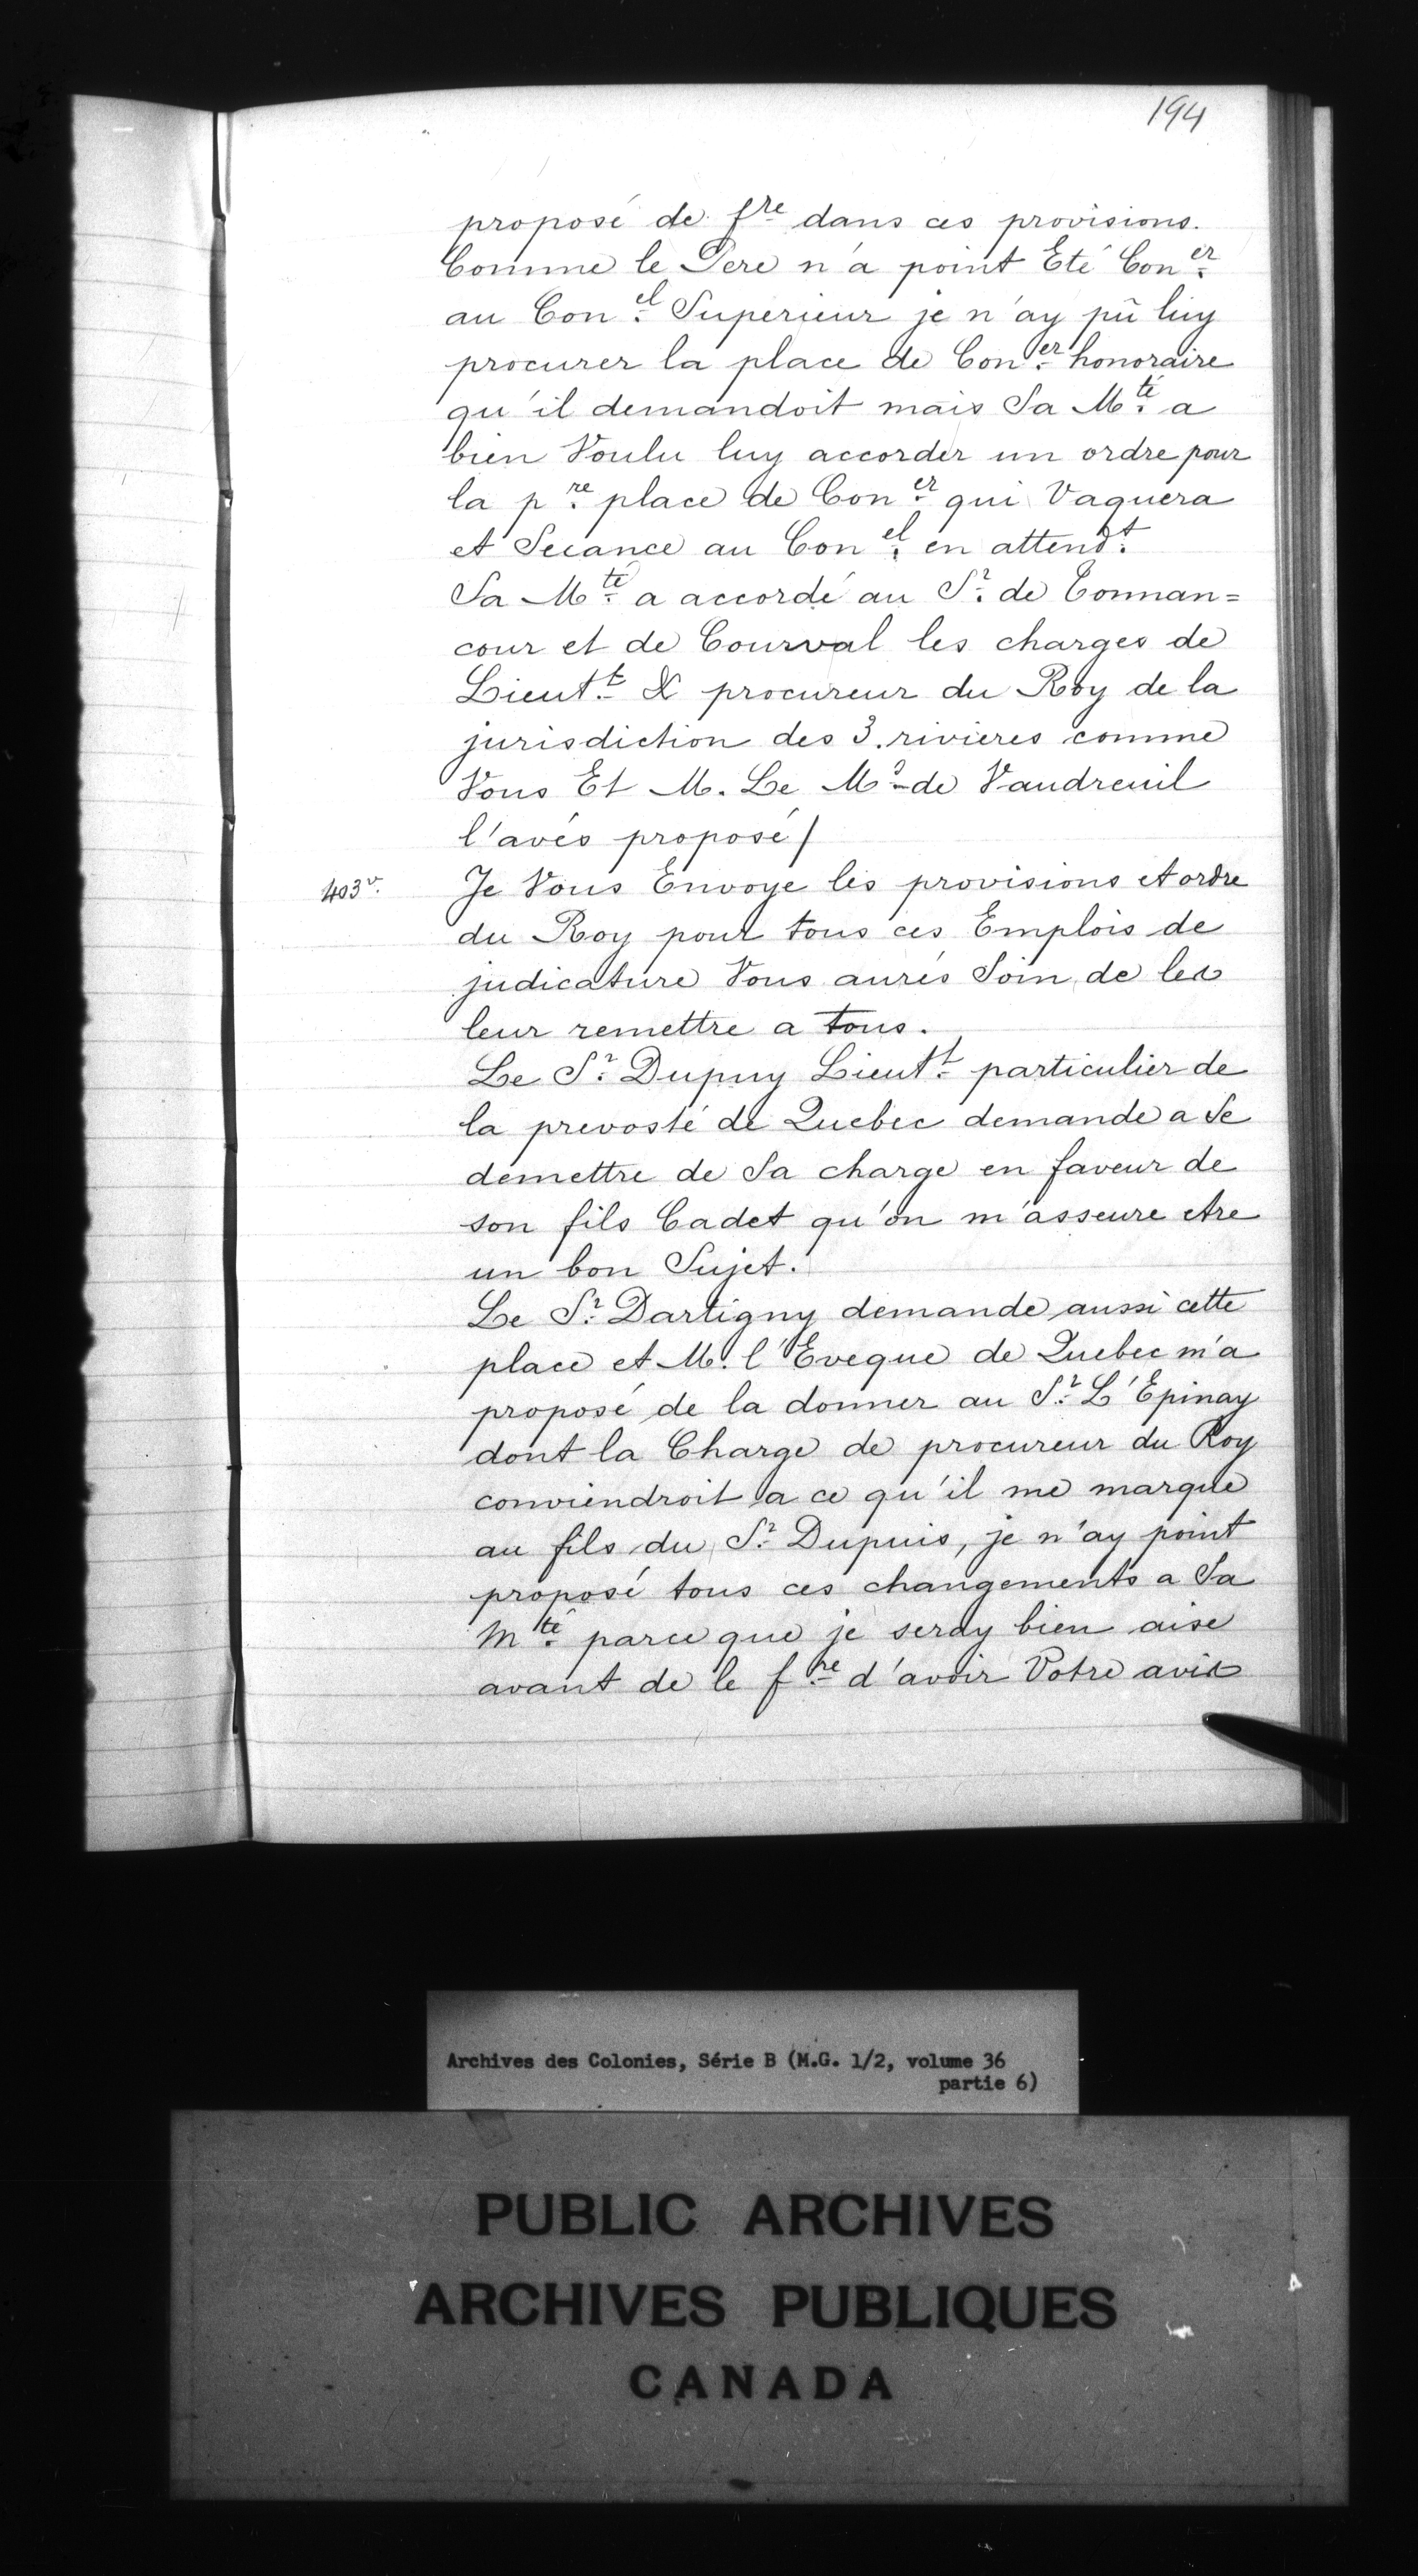 194
proposé de fre dans ces provisions.
Comme le Pere n'a point Eté Coner
au Conel Superieur je n'ay pû luy
procurer la place de Coner honoraire
qu'il demandoit mais Sa Mté a
bien Voulu luy accorder un ordre pour
la pre place de Coner qui Vaquera
et Seeance au Conel en attendt
Sa Mté a accordé au Sr de Tonnan=
cour et de Courval les charges de
Lieutt & procureur du Roy de la
jurisdiction des 3. rivieres comme
Vous Et M. Le Mis de Vaudreuil
l'avés proposé/
403v. Je Vous Envoye les provisions et ordre
du Roy pour tous ces Emplois de
judicature Vous aurés Soin de les
leur remettre a tous.
Le Sr Dupuy Lieutt particulier de
la prevosté de Quebec demande a Se
demettre de Sa charge en faveur de
son fils Cadet qu'on m'asseure etre
un bon Sujet.
Le Sr Dartigny demande aussi cette
place et M. l'Eveque de Quebec m'a
proposé de la donner au Sr L'Epinay
dont la Charge de procureur du Roy
conviendroit a ce qu'il me marque
au fils du Sr Dupuis, je n'ay point
proposé tous ces changements a Sa
Mté parce que je seray bien aise
avant de le fre d'avoir Votre avis
Archives des Colonies, Série B (M.G. 1/2, volume 36
partie 6)
PUBLIC ARCHIVES
ARCHIVES PUBLIQUES
CANADA